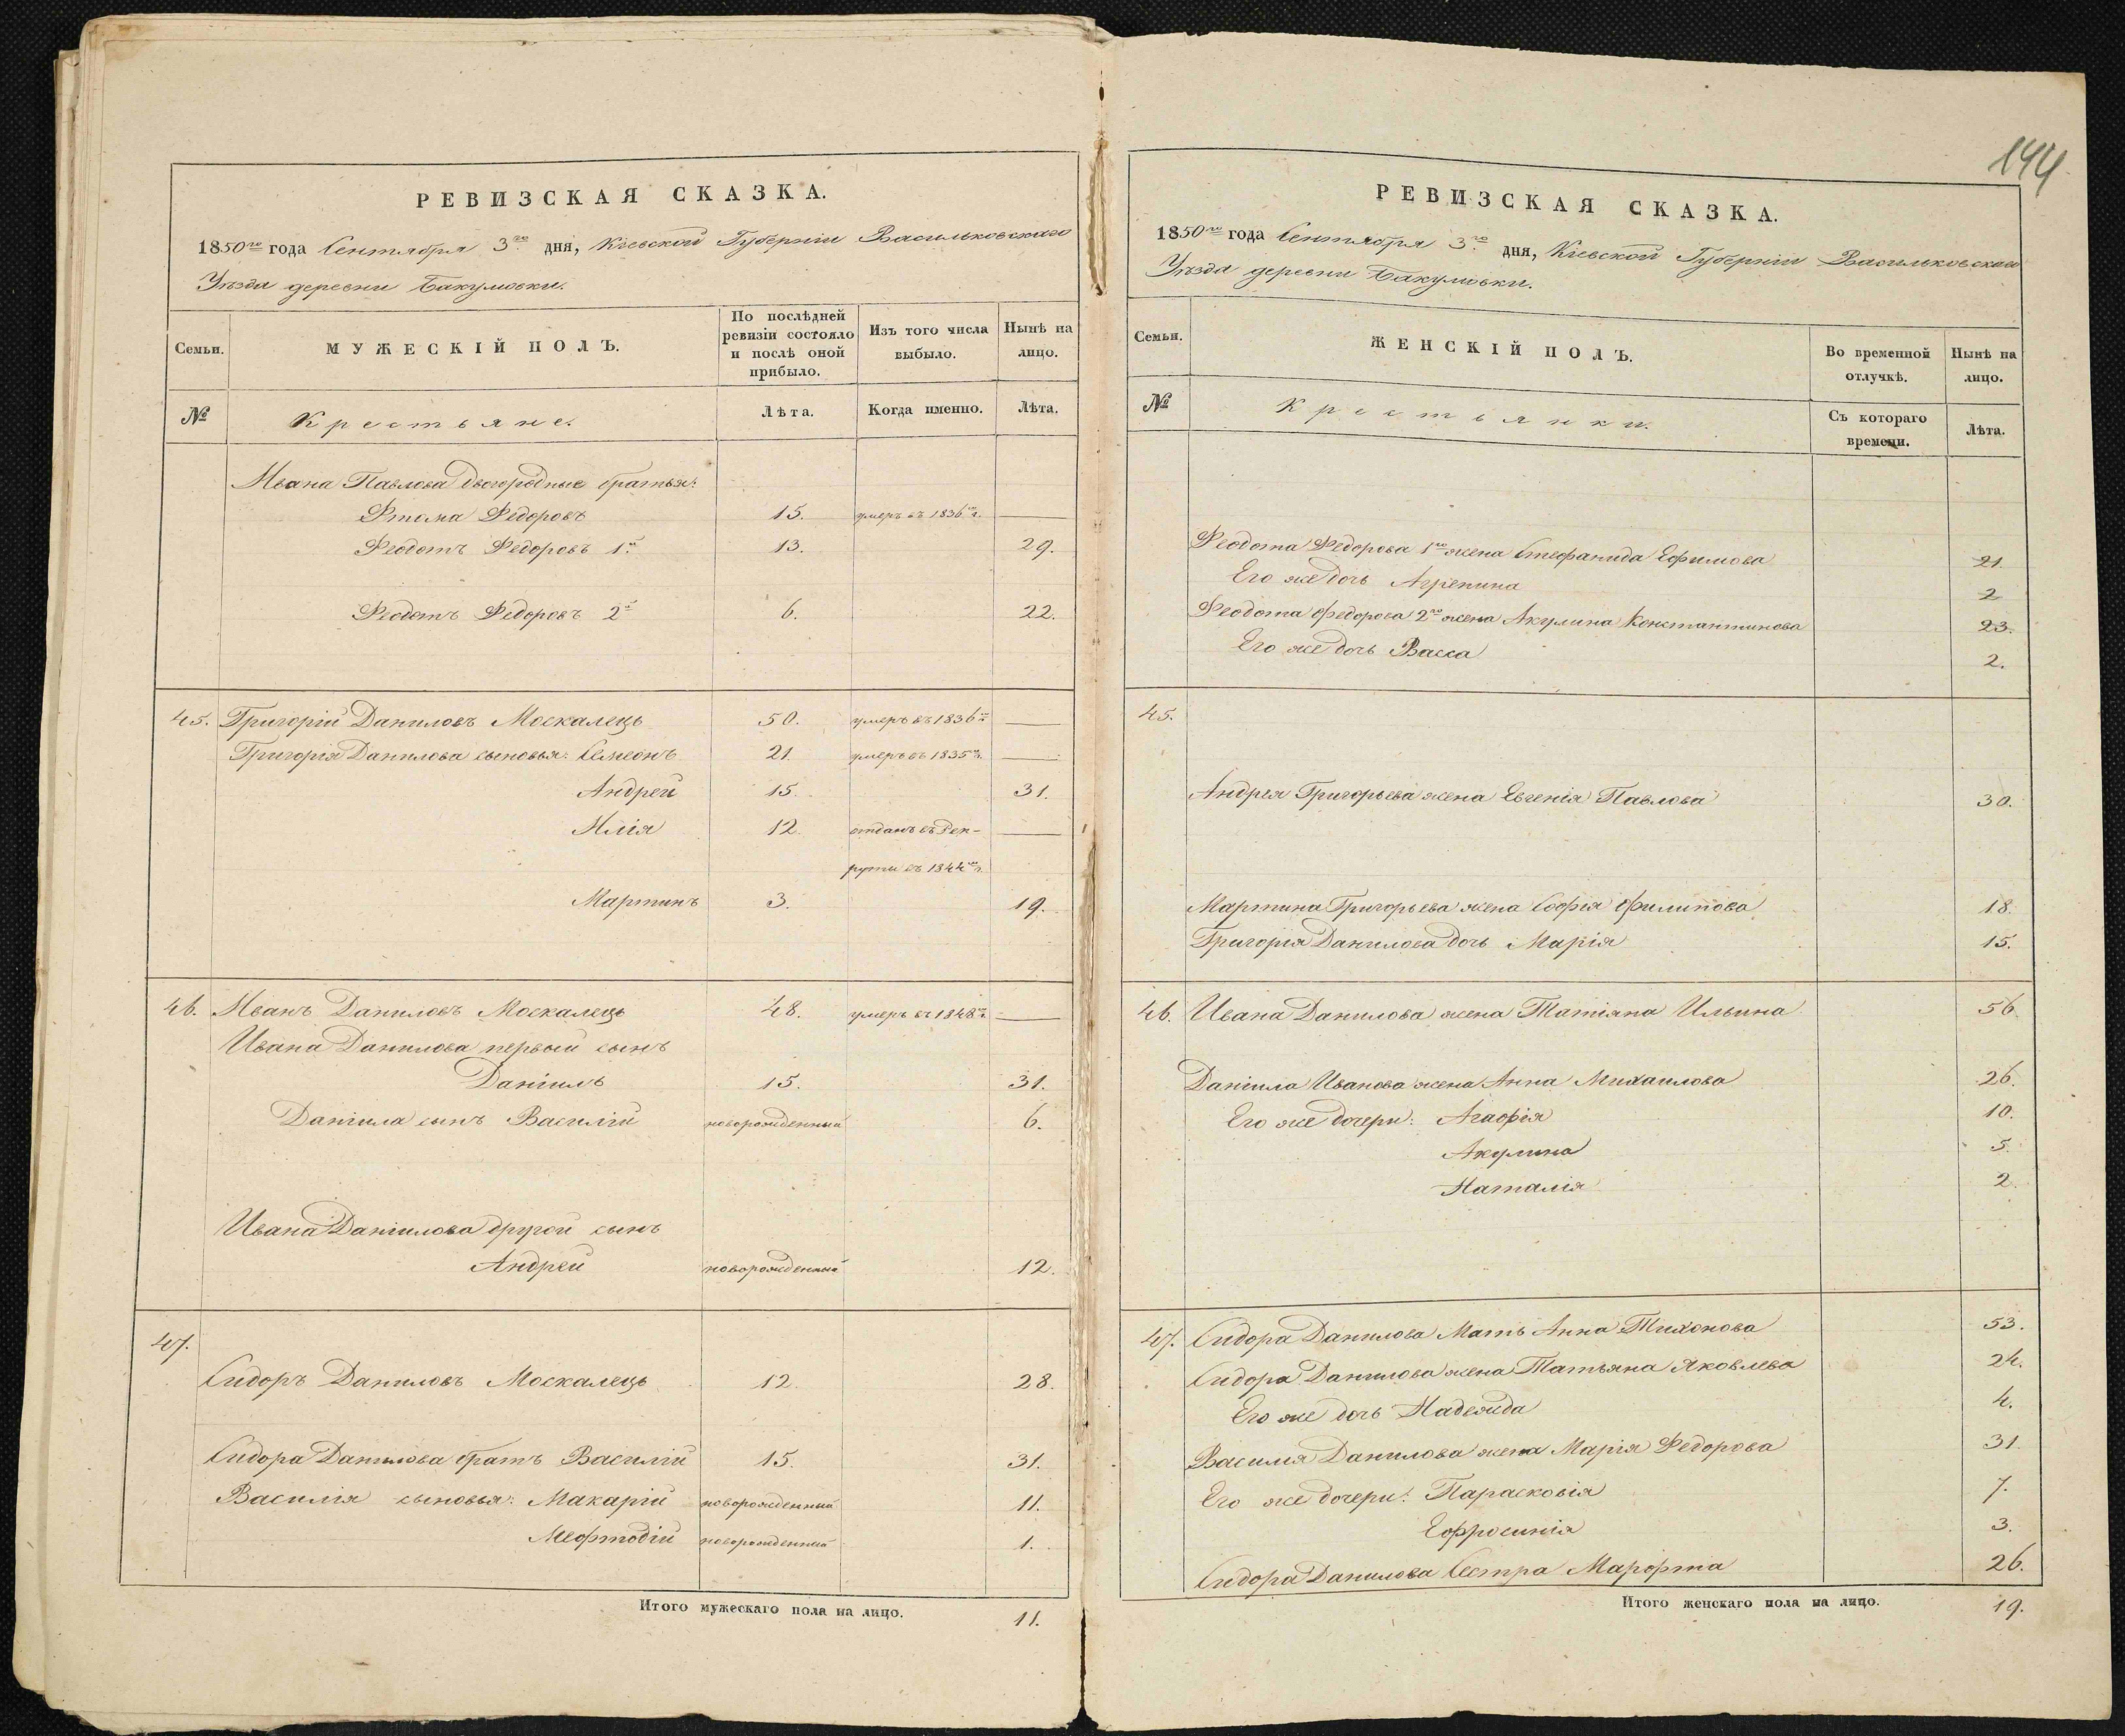 РЕВИЗСКАЯ СКАЗКА.
1850го года Сентября 3го дня, Кіевской Губерніи Васильковскаго
Уѣзда деревни Бакумовки.
Семьи.
МУЖЕСКІЙ ПОЛЪ.
По послѣдней ревизіи состояло и послѣ оной прибыло.
Изъ того числа выбыло.
Нынѣ на лицо.
№
Крестьяне.
Лѣта.
Когда именно.
Лѣта.
Ивана Павлова двоюродные братья:
Фтома Федоровъ 15. умеръ въ 1836го г. —
Феодотъ Федоровъ 1й 13. 29.
Феодотъ Федоровъ 2й 6. 22.
45. Григорій Даниловъ Москалець 50. умеръ въ 1836го г. —
Григорія Данилова сыновья: Семеонъ 21. умеръ въ 1835го г. —
Андрей 15. 31.
Илія 12. отданъ въ Рек- —
руты въ 1844го г.
Мартинъ 3. 19.
46. Иванъ Даниловъ Москалець 48. умеръ въ 1848го г. —
Ивана Данилова первый сынъ
Даніилъ 15. 31.
Даніила сынъ Василій новорожденный 6.
Ивана Даніилова другой сынъ
Андрей новорожденный 12.
47.
Сидоръ Даниловъ Москалець 12. 28.
Сидора Данилова братъ Василій 15. 31.
Василія сыновья: Макарій новорожденный 11.
Мефтодій новорожденный 1.
Итого мужескаго пола на лицо. 11.
144
РЕВИЗСКАЯ СКАЗКА.
1850го года Сентября 3го дня, Кіевской Губерніи Васильковскаго
Уѣзда деревни Бакумовки.
Семьи.
ЖЕНСКІЙ ПОЛЪ.
Во временной отлучкѣ.
Нынѣ на лицо.
№
Крестьянки.
Съ котораго времени.
Лѣта.
Феодота Федорова 1го жена Стефанида Ефимова 21.
Его же дочь Агрепина 2
Феодота Федорова 2го жена Акулина Константинова 23.
Его же дочь Васса 2.
45.
Андрея Григорьева жена Евгенія Павлова 30.
Мартина Григорьева жена Софія Филипова 18.
Григорія Данилова дочь Марія 15.
46. Ивана Данилова жена Татіяна Ильина 56.
Даніила Иванова жена Анна Михаилова 26.
Его же дочери: Агафія 10.
Акулина 5.
Наталія 2.
47. Сидора Данилова Мать Анна Тихонова 53.
Сидора Данилова жена Татьяна Яковлева 24.
Его же дочь Надежда 4.
Василія Данилова жена Марія Федорова 31.
Его же дочери: Парасковія 7.
Ефросинія 3.
Сидора Данилова Сестра Марфта 26.
Итого женскаго пола на лицо. 19.